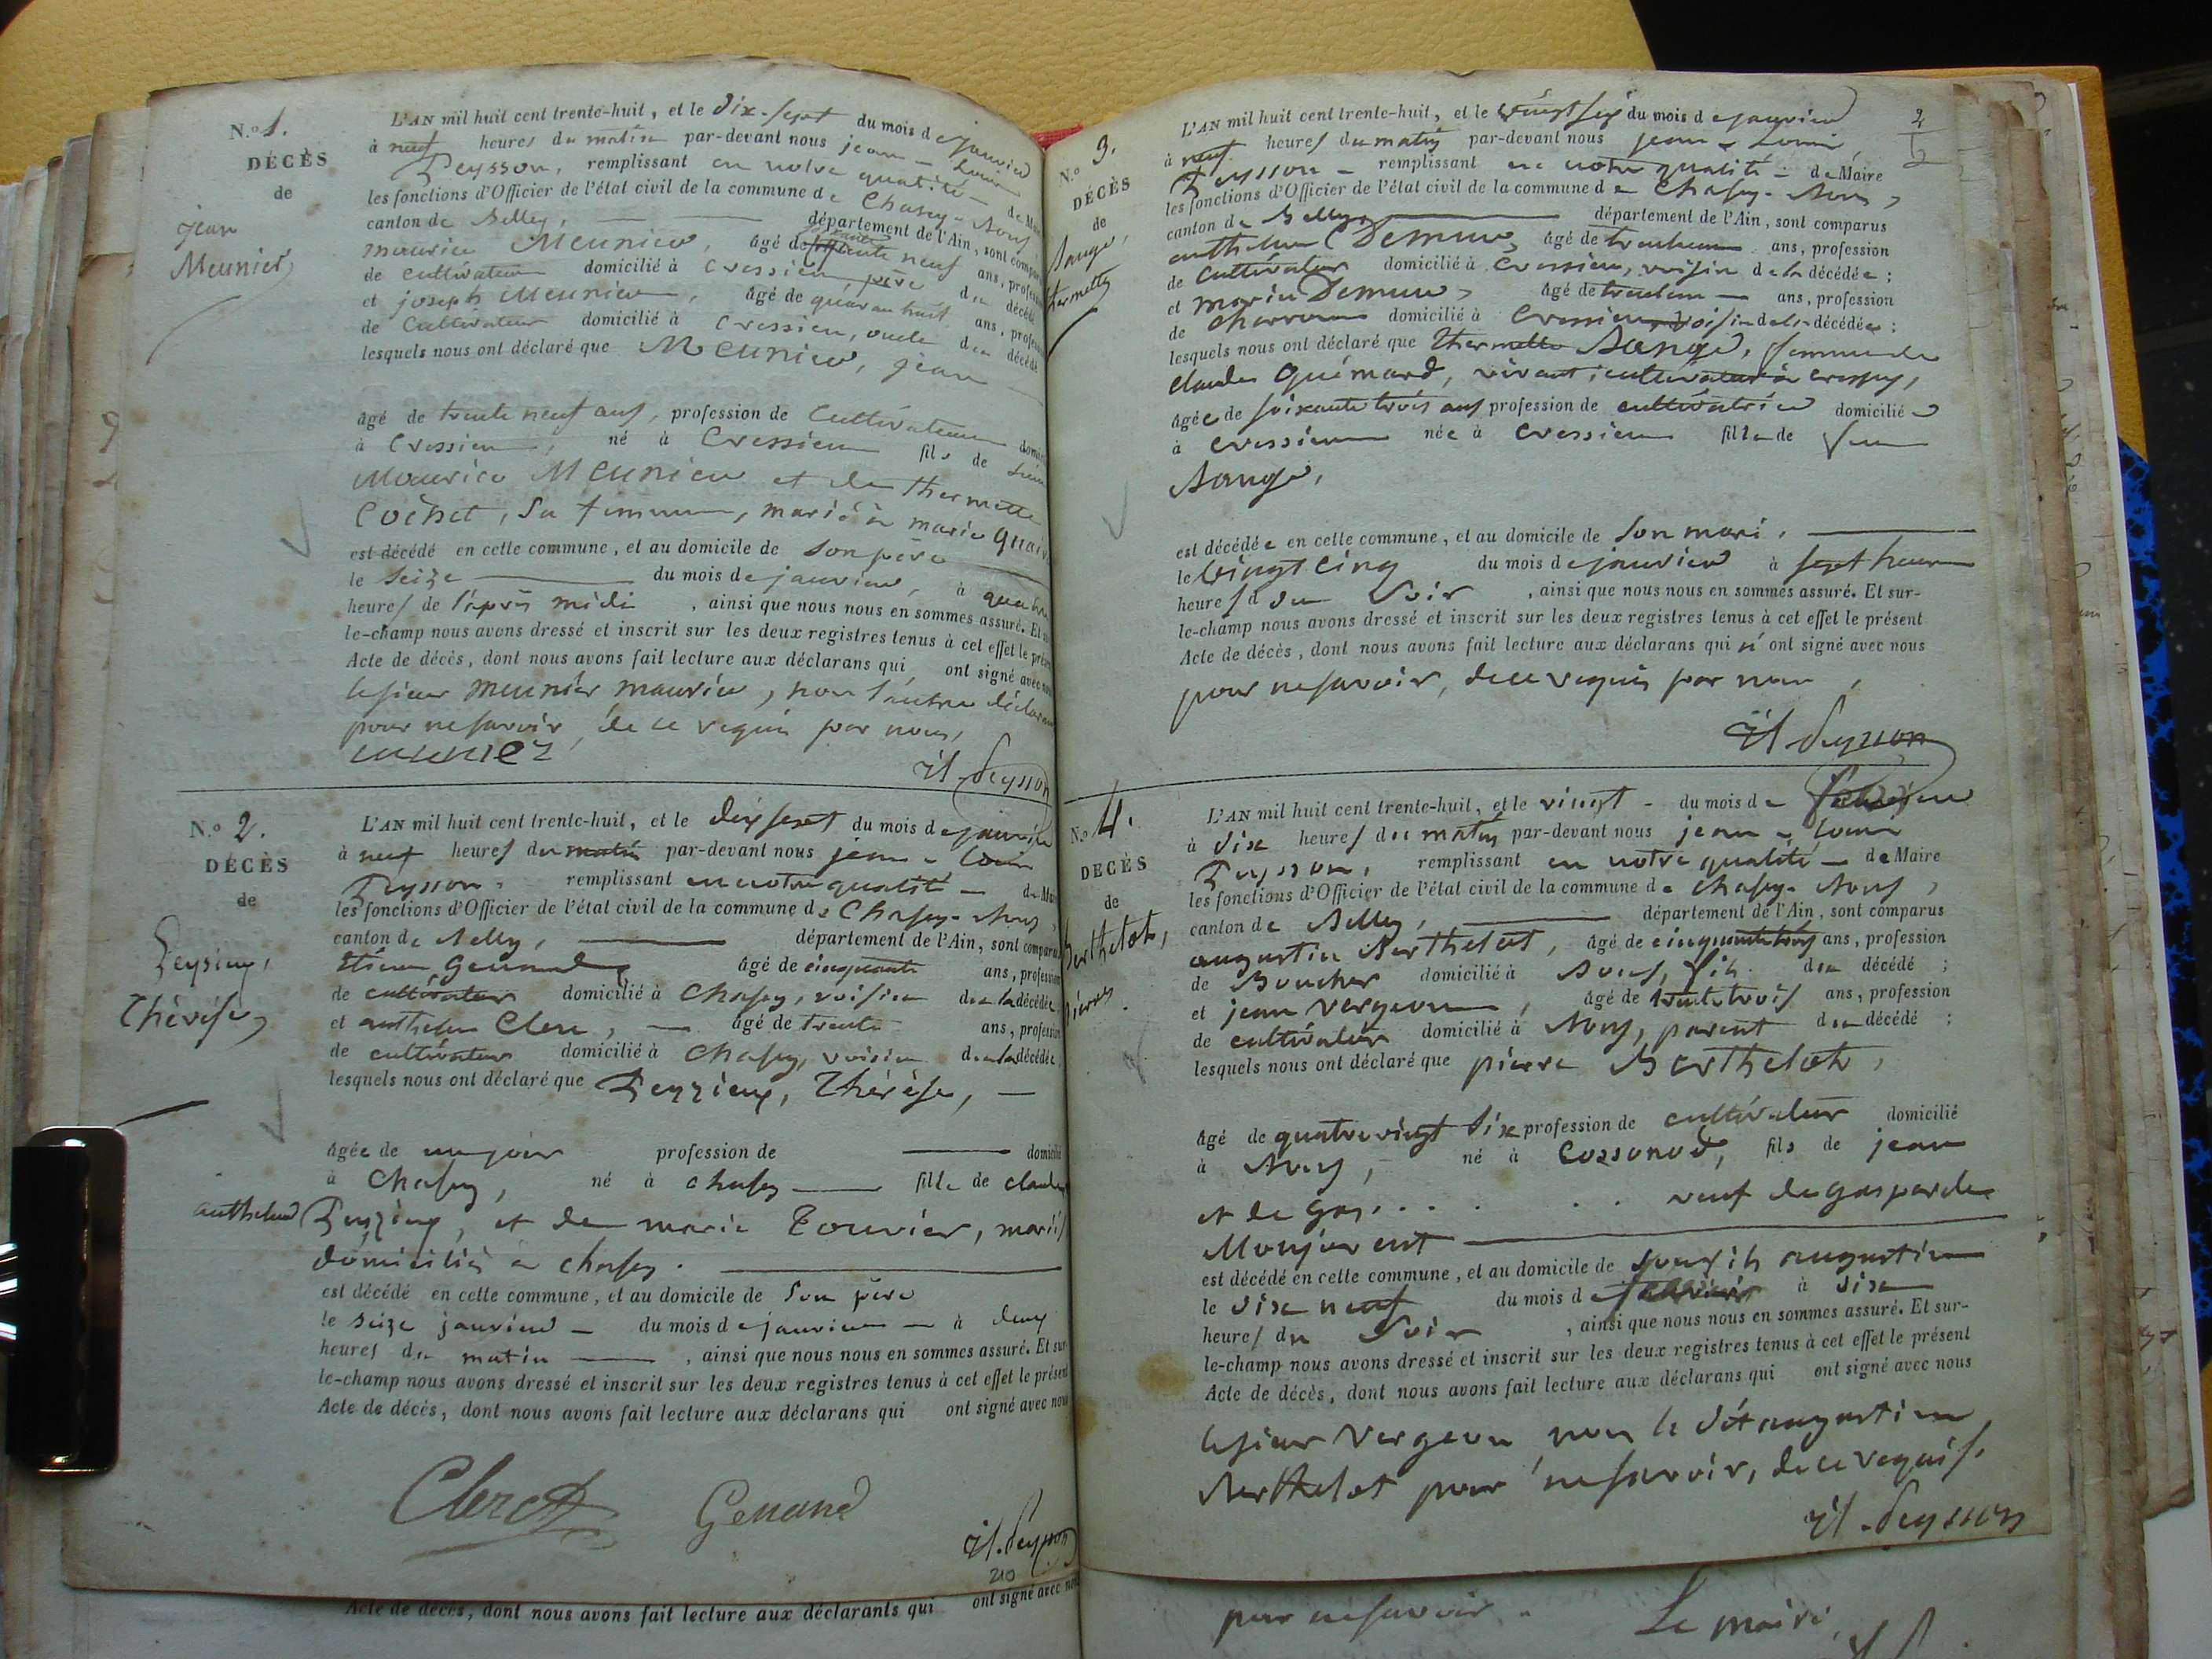 N.º 1.
DÉCÈS
de
jean
Meunier
L'AN mil huit cent trente-huit, et le dix-sept du mois de janvier
à neuf heures du matin par-devant nous jean-Louis
Peysson, remplissant en notre qualité - de Maire
les fonctions d'Officier de l'état civil de la commune de Chazey-
canton de Belley, département de l'Ain, sont compar
maurice Meunier, âgé de neuf ans, profess
de cultivateur domicilié à Cressieu, père du décédé
et joseph Meunier, âgé de quarante huit ans, profess
de Cultivateur domicilié à Cressieu, oncle du décédé
lesquels nous ont déclaré que Meunier, jean
âgé de trente neuf ans, profession de Cultivateur domi
à Cressieu, né à Cressieu fils de
Maurice Meunier et de thermette
Cochet, sa femme, marié à marie
est décédé en cette commune, et au domicile de son père
le seize du mois de janvier, à quatre
heures de l'après midi, ainsi que nous nous en sommes assuré. Et su
le-champ nous avons dressé et inscrit sur les deux registres tenus à cet effet le prése
Acte de décès, dont nous avons fait lecture aux déclarans qui ont signé avec nous
le sieur meunier maurice, non l'autre déclarant
pour ne savoir, de ce requis par nous,
meunier
Jl. Peysson
N.º 2.
DÉCÈS
de
Peysieux,
Thérèse,
L'AN mil huit cent trente-huit, et le dix sept du mois de janvier
à neuf heures du matin par-devant nous jean-Louis
Peysson, remplissant en notre qualité - de Mai
les fonctions d'Officier de l'état civil de la commune de Chazey-
canton de Belley, département de l'Ain, sont comparus
Genand âgé de cinquante ans, profession
de cultivateur domicilié à Chazey, voisin de la décédée
et anthelme Clerc, - âgé de trente ans, profession
de cultivateur domicilié à Chazey, voisin de la décédée
lesquels nous ont déclaré que Peyzieux, Thérèse, -
âgée de un jour profession de domicilié
à Chazey, né à chazey fille de claude
anthelme Peyzieux, et de marie Touvier, mariés
domiciliés à chazey.
est décédé en cette commune, et au domicile de son père
le seize janvier - du mois de janvier - à deux
heures du matin, ainsi que nous nous en sommes assuré. Et sur
le-champ nous avons dressé et inscrit sur les deux registres tenus à cet effet le présent
Acte de décès, dont nous avons fait lecture aux déclarans qui ont signé avec nous
Clerc A Genand
Jl. Peysson
210
Acte de décès, dont nous avons fait lecture aux déclarants qui ont signé avec nous
N.º 3.
DÉCÈS
de
Sangé,
thermette
L'AN mil huit cent trente-huit, et le vingt six du mois de janvier
à neuf heures du matin par-devant nous jean-Louis
Peysson - remplissant en notre qualité - de Maire
les fonctions d'Officier de l'état civil de la commune de Chazey-
canton de Belley, département de l'Ain, sont comparus
anthelme Demure, âgé de ans, profession
de Cultivateur domicilié à Cressieu, voisin de la décédée;
et Demure, âgé de ans, profession
de charron domicilié à Cressieu, voisin de la décédée;
lesquels nous ont déclaré que thermette Sangé, femme de
claude Guémard, vivant, cultivateur à
âgée de soixante trois ans profession de cultivatrice domiciliée
à Cressieu née à Cressieu fille de feu
Sangé,
est décédée en cette commune, et au domicile de son mari,
le vingt cinq du mois de janvier à sept heures
heures du soir, ainsi que nous nous en sommes assuré. Et sur-
le-champ nous avons dressé et inscrit sur les deux registres tenus à cet effet le présent
Acte de décès, dont nous avons fait lecture aux déclarans qui n'ont signé avec nous
pour ne savoir, de ce requis par nous,
Jl. Peysson
N.º 4.
DÉCÈS
de
Berthelot,
pierre.
L'AN mil huit cent trente-huit, et le vingt - du mois de
à dix heures du matin par-devant nous jean-Louis
Peysson, remplissant en notre qualité - de Maire
les fonctions d'Officier de l'état civil de la commune de Chazey-
canton de Belley, département de l'Ain, sont comparus
augustin Berthelot, âgé de cinquante trois ans, profession
de Boucher domicilié à fils du décédé;
et jean Vergeon, âgé de trente trois ans, profession
de cultivateur domicilié à parent du décédé;
lesquels nous ont déclaré que pierre Berthelot,
âgé de quatre vingt six profession de cultivateur domicilié
à né à Cossonod, fils de jean
et de Gas.... veuf de gasparde
Monjovent
est décédé en cette commune, et au domicile de son fils augustin
le dix neuf du mois de à dix
heures du soir, ainsi que nous nous en sommes assuré. Et sur-
le-champ nous avons dressé et inscrit sur les deux registres tenus à cet effet le présent
Acte de décès, dont nous avons fait lecture aux déclarans qui ont signé avec nous
le sieur Vergeon non le dit augustin
Berthelot pour ne savoir, de ce requis.
Jl. Peysson
pour ne savoir.
Le maire,